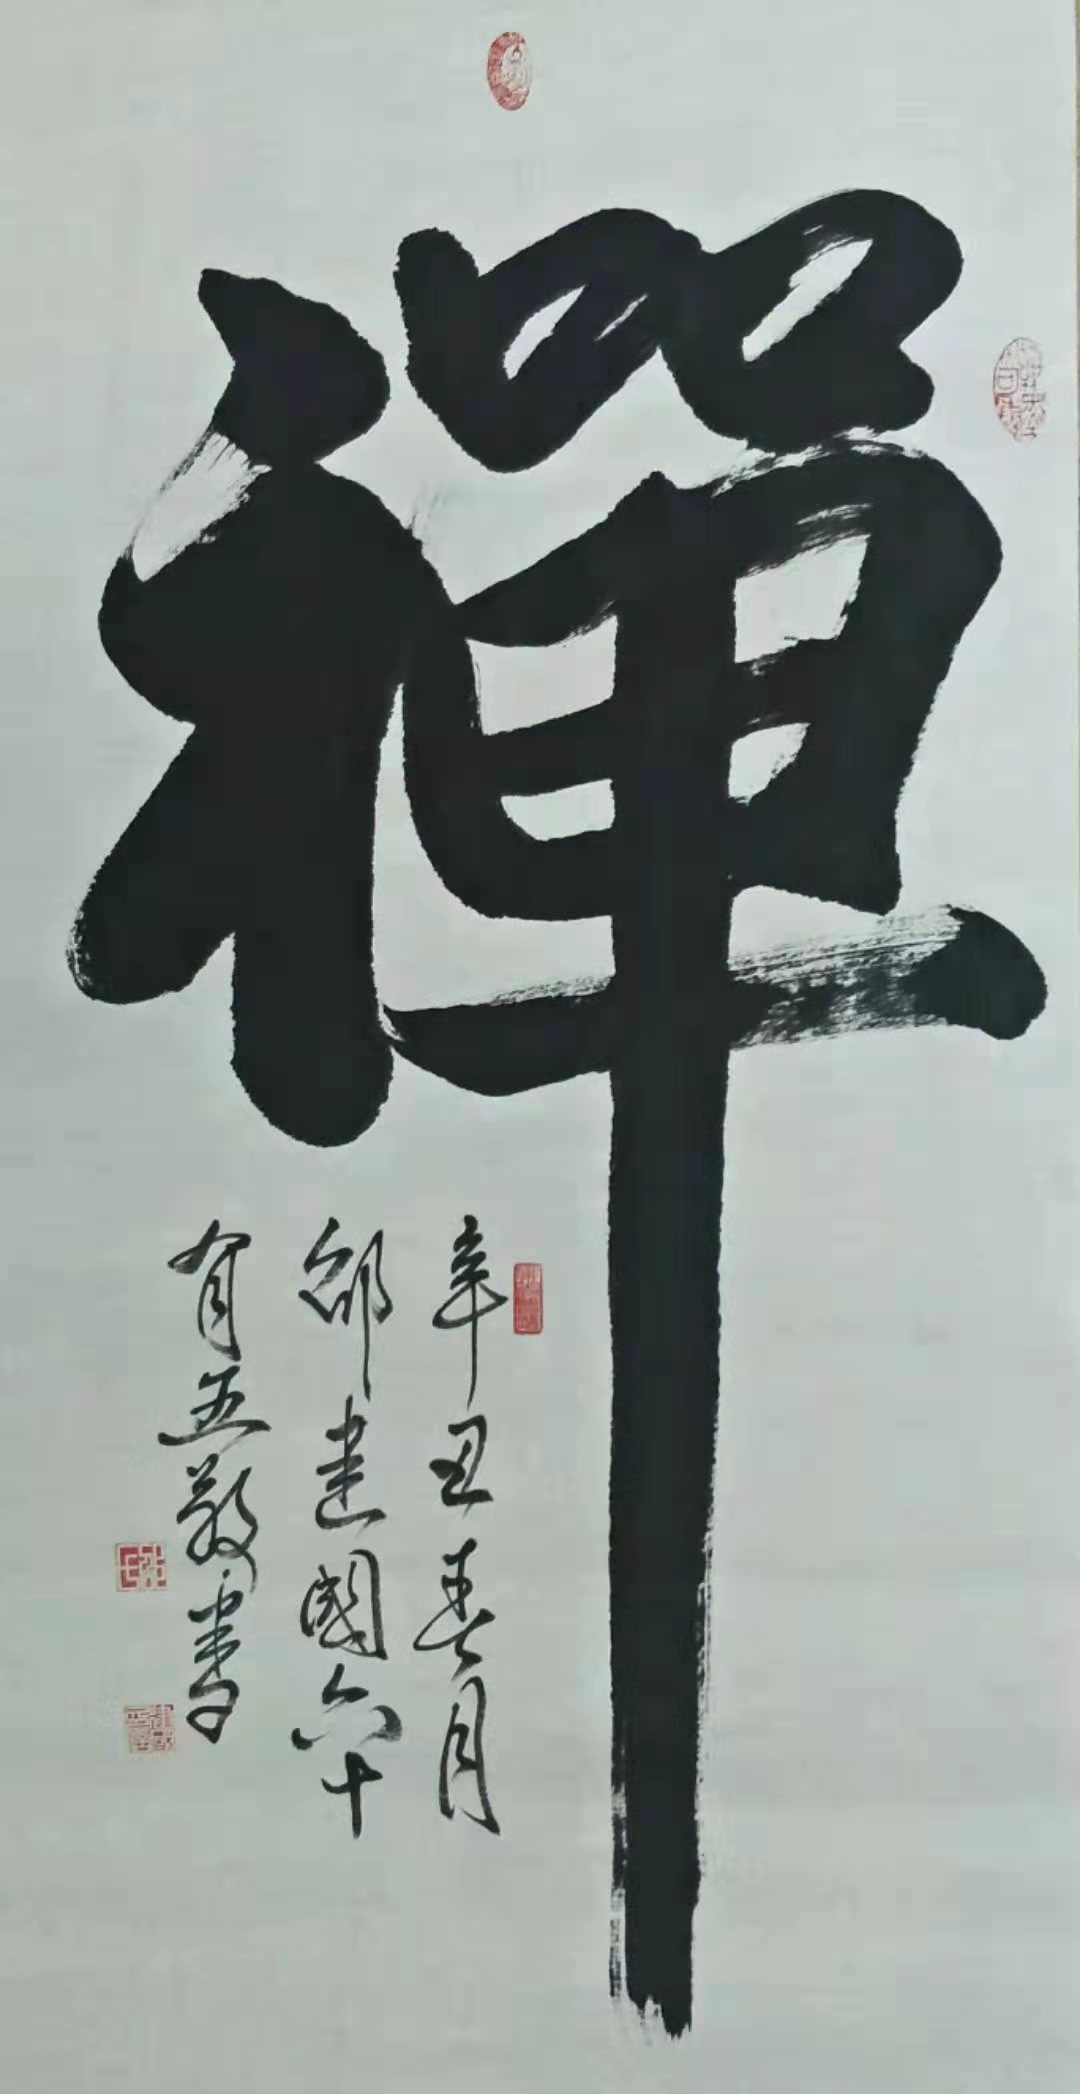 禪
辛丑春月
邵建國六十
有五敬書